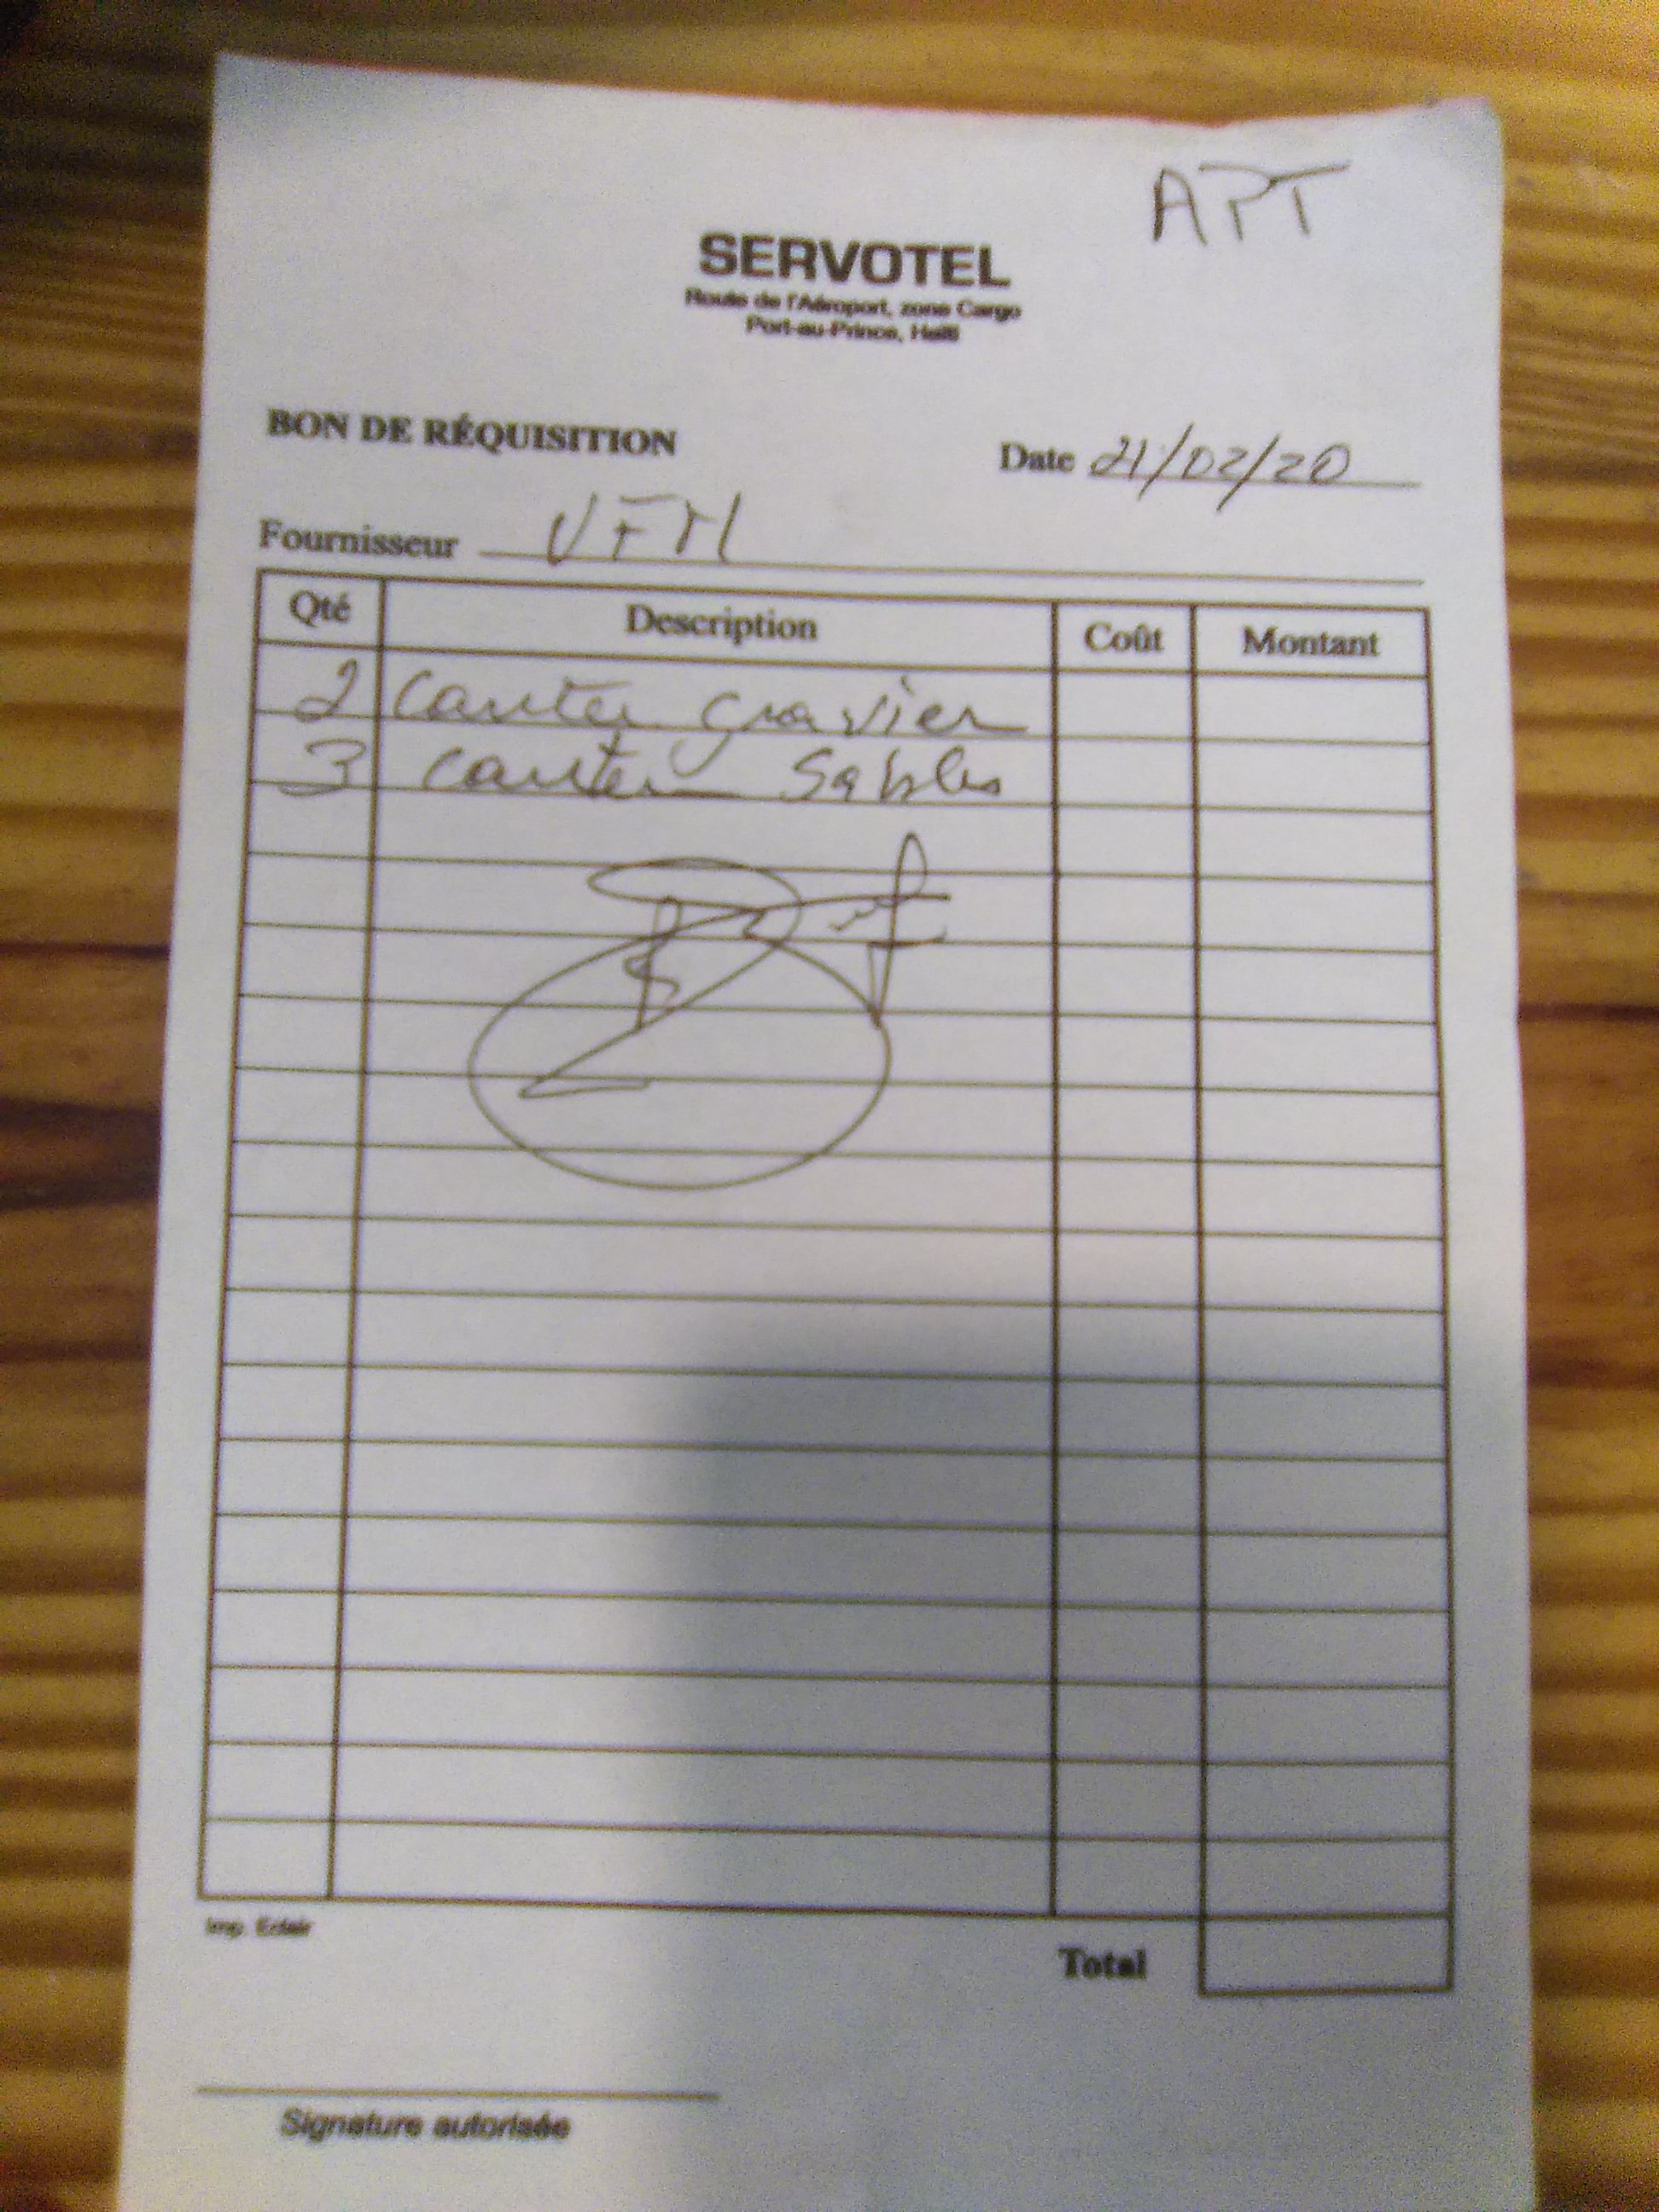 APT
SERVOTEL
Route de l'Aéroport, zone Cargo
Port-au-Prince, Haïti
BON DE RÉQUISITION
Date 21/02/20
Fournisseur
Qté Description Coût Montant
2 Canter gravier
3 Canter Sables
Imp. Eclair
Total
Signature autorisée